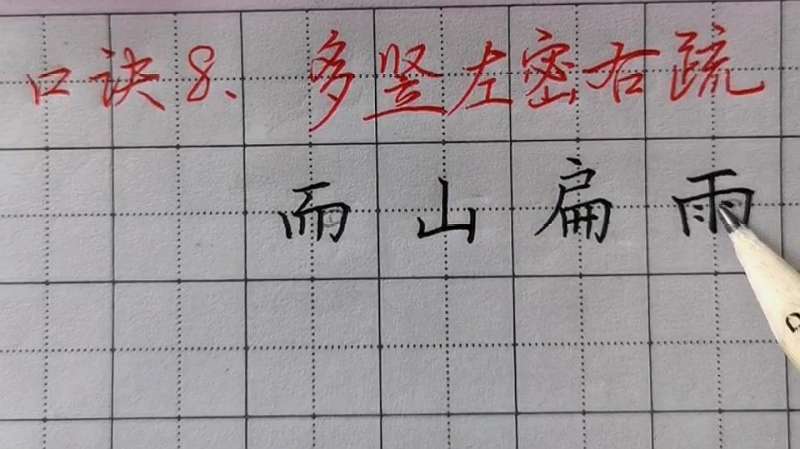 口诀8、多竖左密右疏
而山扁雨